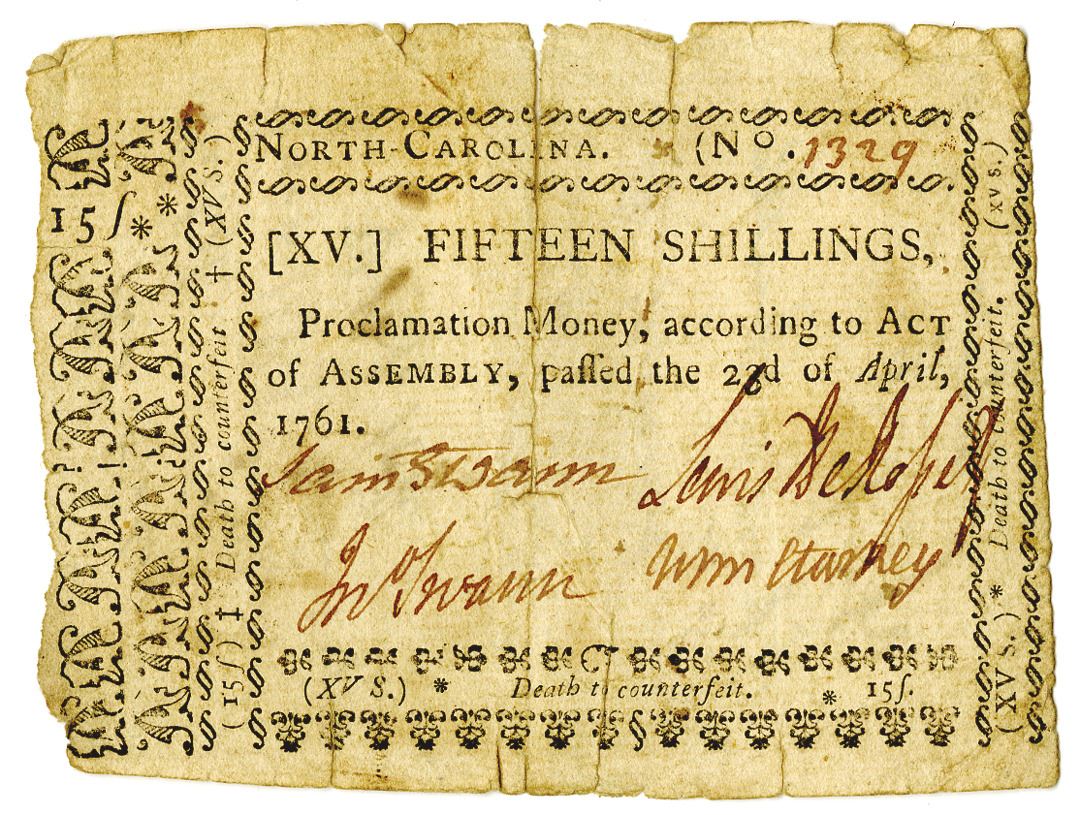 NORTH-CAROLINA. (No. 1329
[XV.] FIFTEEN SHILLINGS,
Proclamation Money, according to ACT
of ASSEMBLY, paſſed the 23d of April,
1761.
Sam Swann
Lewis DeRosset
Jno Swann
Wm Starkey
(XV S.) * Death to counterfeit. * 15ſ.
15ſ * *
(15ſ) ‡ Death to counterfeit † (XV S.)
(XV S.) * Death to counterfeit. (XV S.)